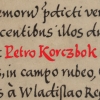 emorẘ pdicti ver
centibus illos du
Petro Korczbok
, in campo rubeo, C
à Wladislao Re